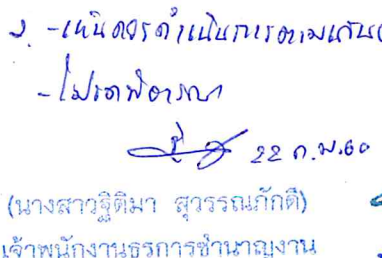 ๖. - เห็นควรดำเนินการตามเสนอ
- โปรดพิจารณา
22 ก.พ. 60
(นางสาวฐิติมา สุวรรณภักดี)
เจ้าพนักงานธุรการชำนาญงาน